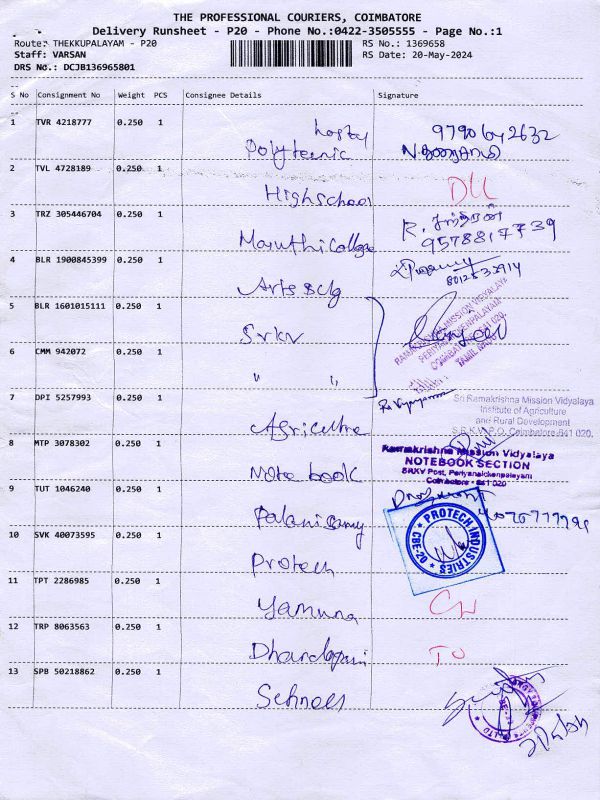 THE PROFESSIONAL COURIERS, COIMBATORE
Delivery Runsheet - P20 - Phone No.:0422-3505555 - Page No.:1
Route: THEKKUPALAYAM - P20
RS No.: 1369658
Staff: VARSAN
RS Date: 20-May-2024
DRS No.: DCJB136965801
S No Consignment No Weight PCS Consignee Details Signature
1 TVR 4218777 0.250 1
Hostel
Polyteenic
9790642632
N.துரைசாமி
2 TVL 4728189 0.250 1
Highschool
DLL
3 TRZ 305446704 0.250 1
Maruthi College
R. சந்திரன்
9578817739
4 BLR 1900845399 0.250 1
Arts Clg
8012532914
5 BLR 1601015111 0.250 1
Srkv
RAMAKRISHNA MISSION VIDYALAYA
PERIYANAICKENPALAYAM
COIMBATORE - 641 020.
TAMIL NADU
6 CMM 942072 0.250 1
" "
7 DPI 5257993 0.250 1
Agriculture
Sri Ramakrishna Mission Vidyalaya
Institute of Agriculture
and Rural Development
S.R.K.V.P.O, Coimbatore-641 020.
8 MTP 3078302 0.250 1
Note book
Ramakrishna Mission Vidyalaya
NOTEBOOK SECTION
SRKV Post, Periyanaickenpalayam
Coimbatore - 641 020
9 TUT 1046240 0.250 1
Palanisamy
10 SVK 40073595 0.250 1
Protech
PROTECH INDUSTRIES
CBE-20
11 TPT 2286985 0.250 1
Yamuna
CW
12 TRP 8063563 0.250 1
Dhandapani
TO
13 SPB 50218862 0.250 1